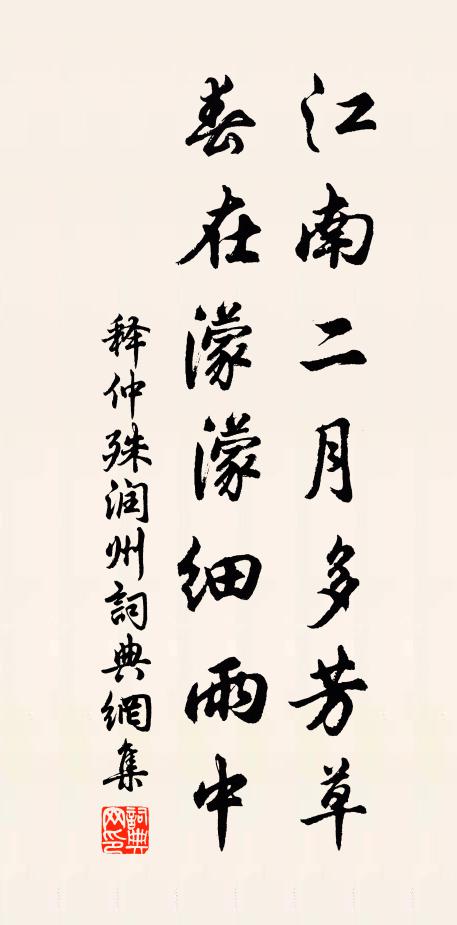 江南二月多芳草
春在濛濛細雨中
释仲殊润州詞典網集
詞典網印